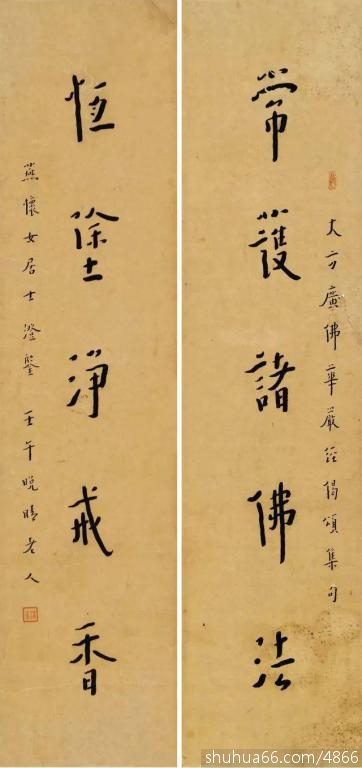 大方廣佛華嚴經偈頌集句
常護諸佛法
恆塗淨戒香
燕懷女居士澄鑒 壬午晚晴老人
shuhua66.com/4866